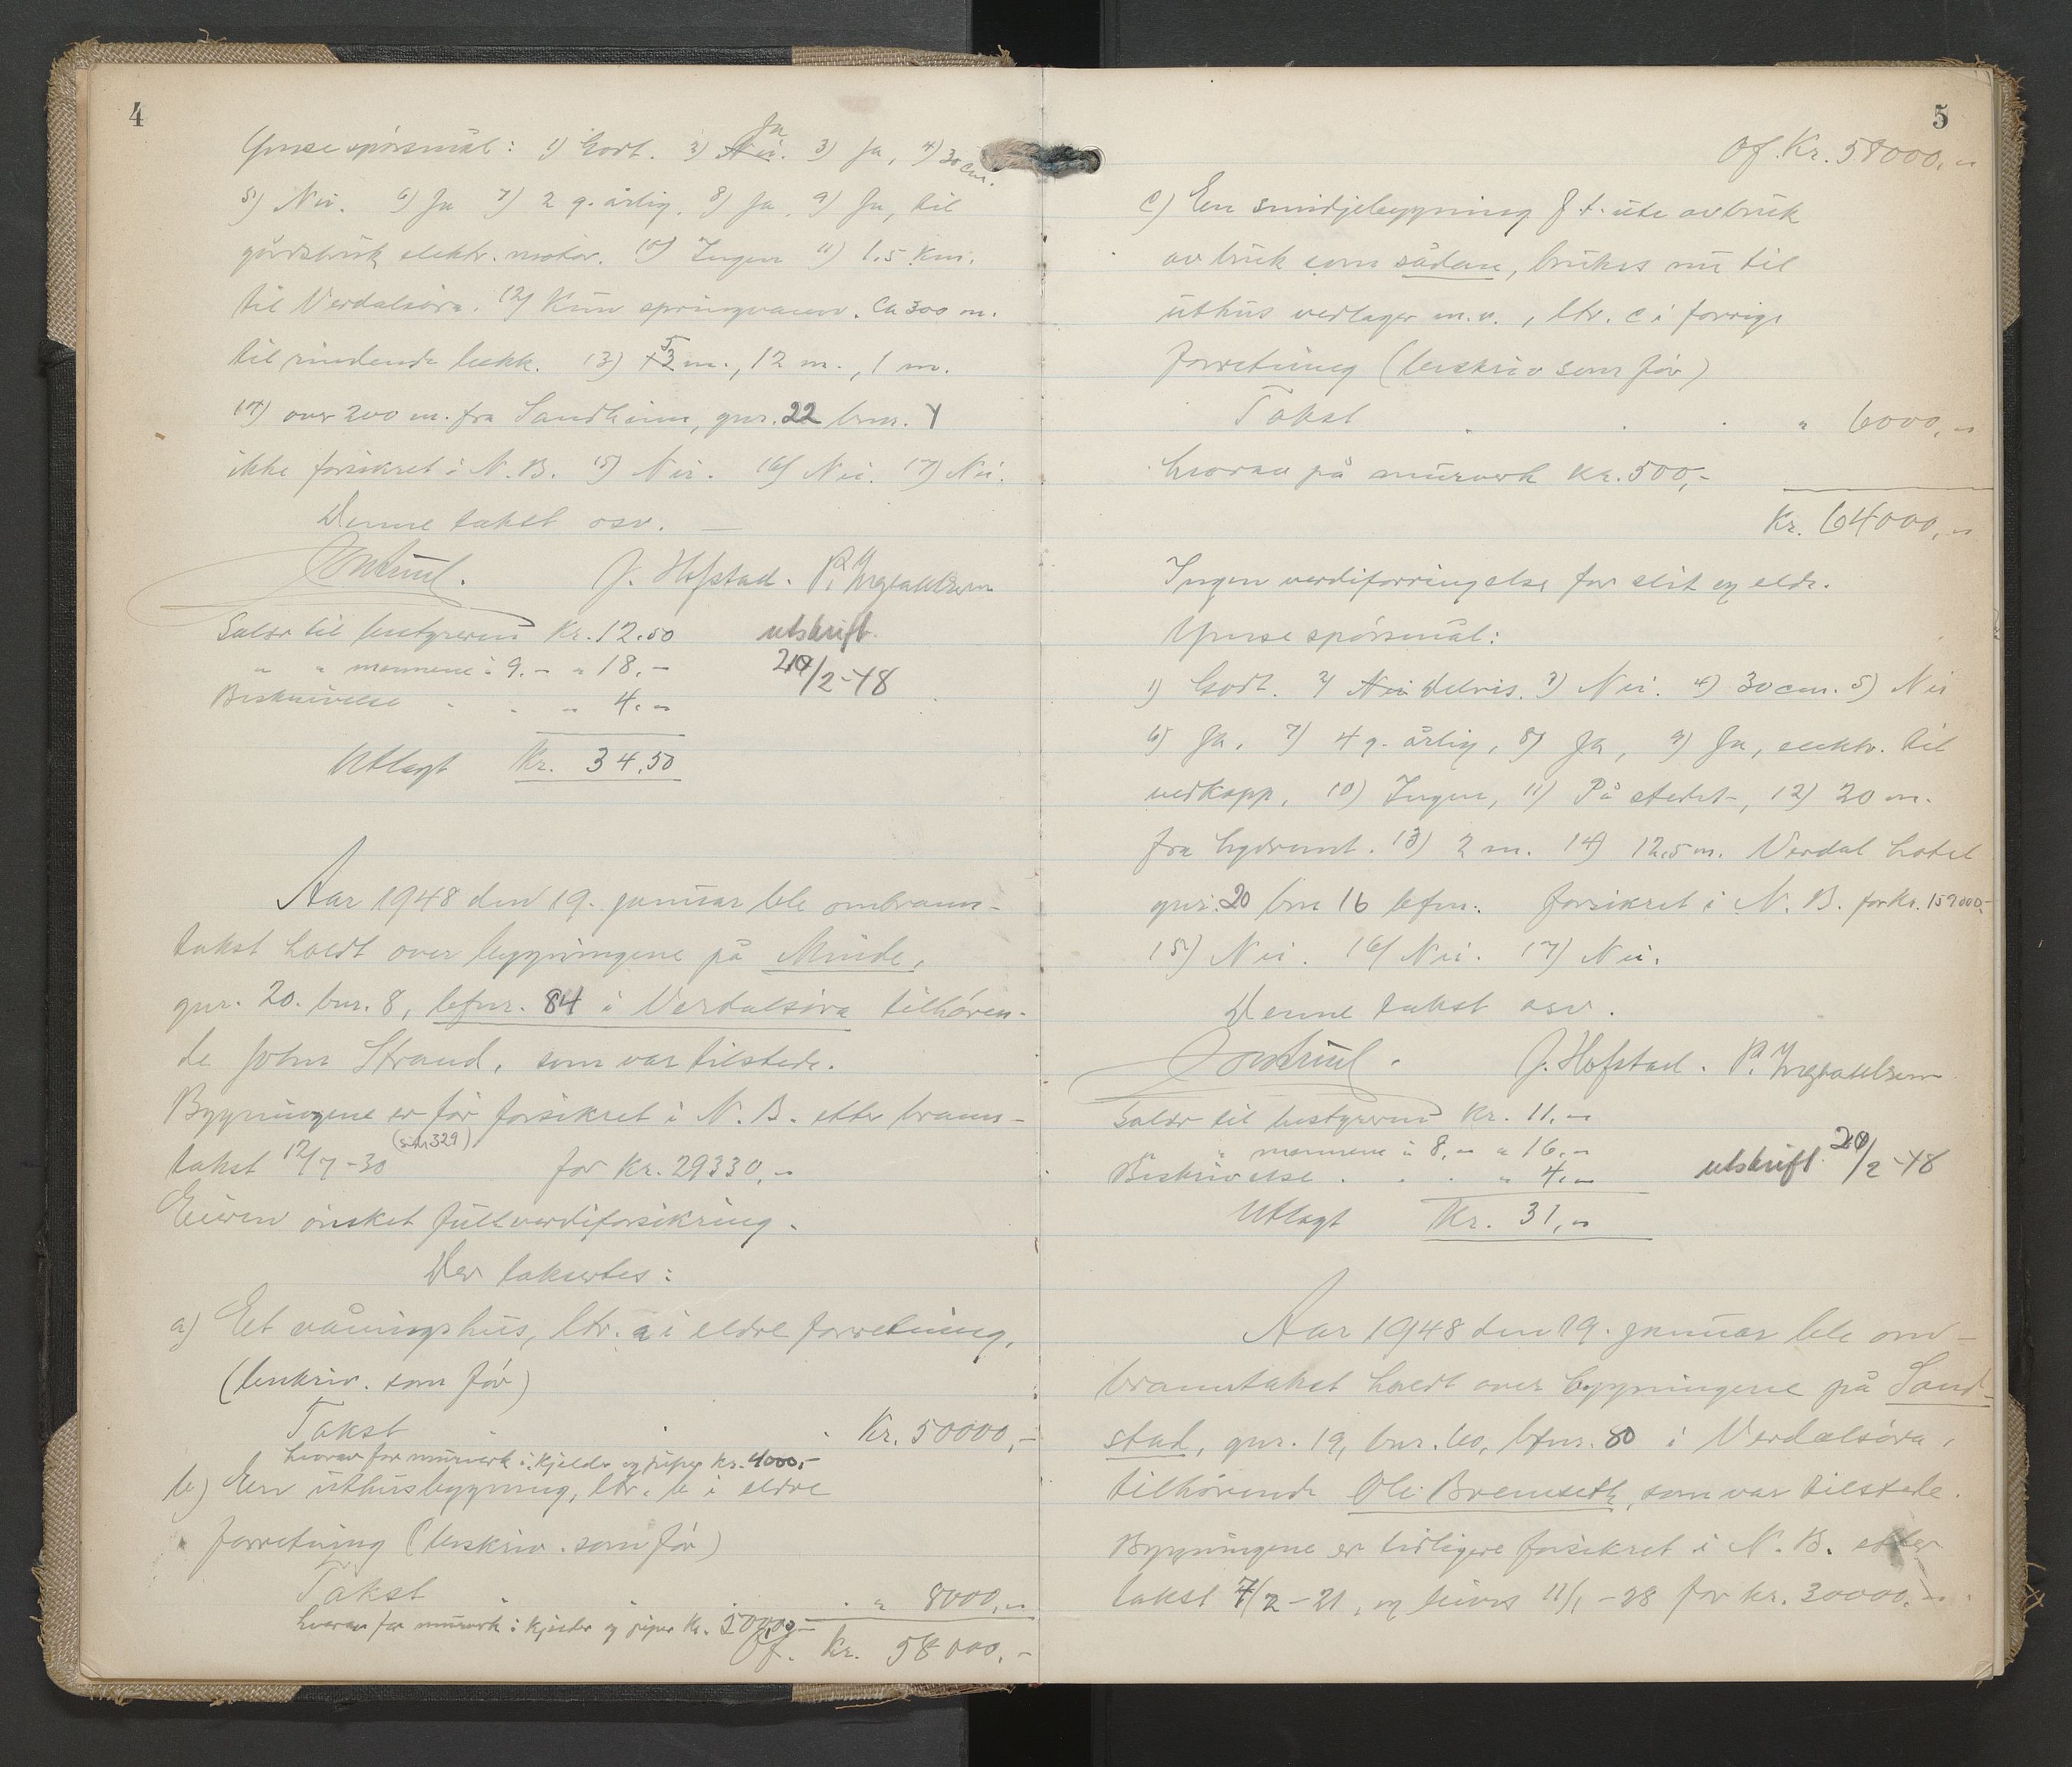 4
Ymse spörsmål: 1) Godt. 2) Nei. Ja 3) Ja, 4) 30 cm.
5) Nei. 6) Ja 7) 2 g. årlig. 8) Ja. 9) Ja, til
gårdsbruk elektr. motor. 10) Ingen 11) 1.5 km.
til Verdalsöra. 12) Kun springvann. Ca 300 m.
til rindende bekk. 13) 5 m., 12 m., 1 m.
14) over 200 m. fra Sandheim, gnr. 22 brnr. 4
ikke forsikret i N.B. 15) Nei. 16) Nei. 17) Nei.
Denne takst osv. —
J. Hofstad. P. Ingvaldsen
Salær til bestyreren Kr. 12.50 utskrift
" " mennene à 9,- " 18,-
Beskrivelse . . " 4,- 20/2-48
Utlagt Kr. 34,50
Aar 1948 den 19. januar ble ombrann-
takst holdt over bygningene på Minde,
gnr. 20. bnr. 8, bfnr. 84 i Verdalsöra tilhören-
de John Strand, som var tilstede.
Bygningene er för forsikret i N.B. etter brann-
takst 12/7-30 (side 329) for Kr. 29330,-
Eieren önsket fullverdiforsikring.
Der taksertes:
a) Et våningshus, ltr. a i eldre forretning.
(beskriv. som för)
Takst . . Kr. 50000,-
hvorav for murverk i kjelder og piper kr. 4000,-
b) En uthusbygning, ltr. b i eldre
forretning (beskriv. som för)
Takst . . " 8000,-
hvorav for murverk i kjelder og piper kr. 500,00
Of. kr. 58000,-
5
Of. Kr. 58000,-
c) En smidjebygning f.t. ute av bruk
av bruk som sådan, brukes nu til
uthus vedlager m.v., ltr. c i forrige
forretning (beskriv som för)
Takst . . . " 6000,-
hvorav på murverk kr. 500,-
Kr. 64000,-
Ingen verdiforringelse for slit og elde.
Ymse spörsmål:
1) Godt. 2) Nei Delvis. 3) Nei. 4) 30 cm. 5) Nei
6) Ja. 7) 4 g. årlig, 8) Ja, 9) Ja, elektr. til
vedkapp, 10) Ingen, 11) På stedet, 12) 20 m.
fra hydrant. 13) 2 m. 14) 12,5 m. Verdal hotel
gnr. 20 bnr 16 bfnr. forsikret i N.B. for Kr. 159000,-
15) Nei. 16) Nei. 17) Nei.
Denne takst osv.
J. Hofstad. P. Ingvaldsen
Salær til bestyreren Kr. 11,-
" " mennene à 8,- " 16,-
Beskrivelse . . . " 4,- utskrift 20/2-48
Utlagt Kr. 31,-
Aar 1948 den 19. januar ble om-
branntakst holdt over bygningene på Sand-
stad, gnr. 19, bnr. 60, bfnr. 80 i Verdalsöra,
tilhörende Ole Bremseth, som var tilstede.
Bygningene er tidligere forsikret i N.B. etter
takst 7/2-21, og 11/1-28 for kr. 30000,-.